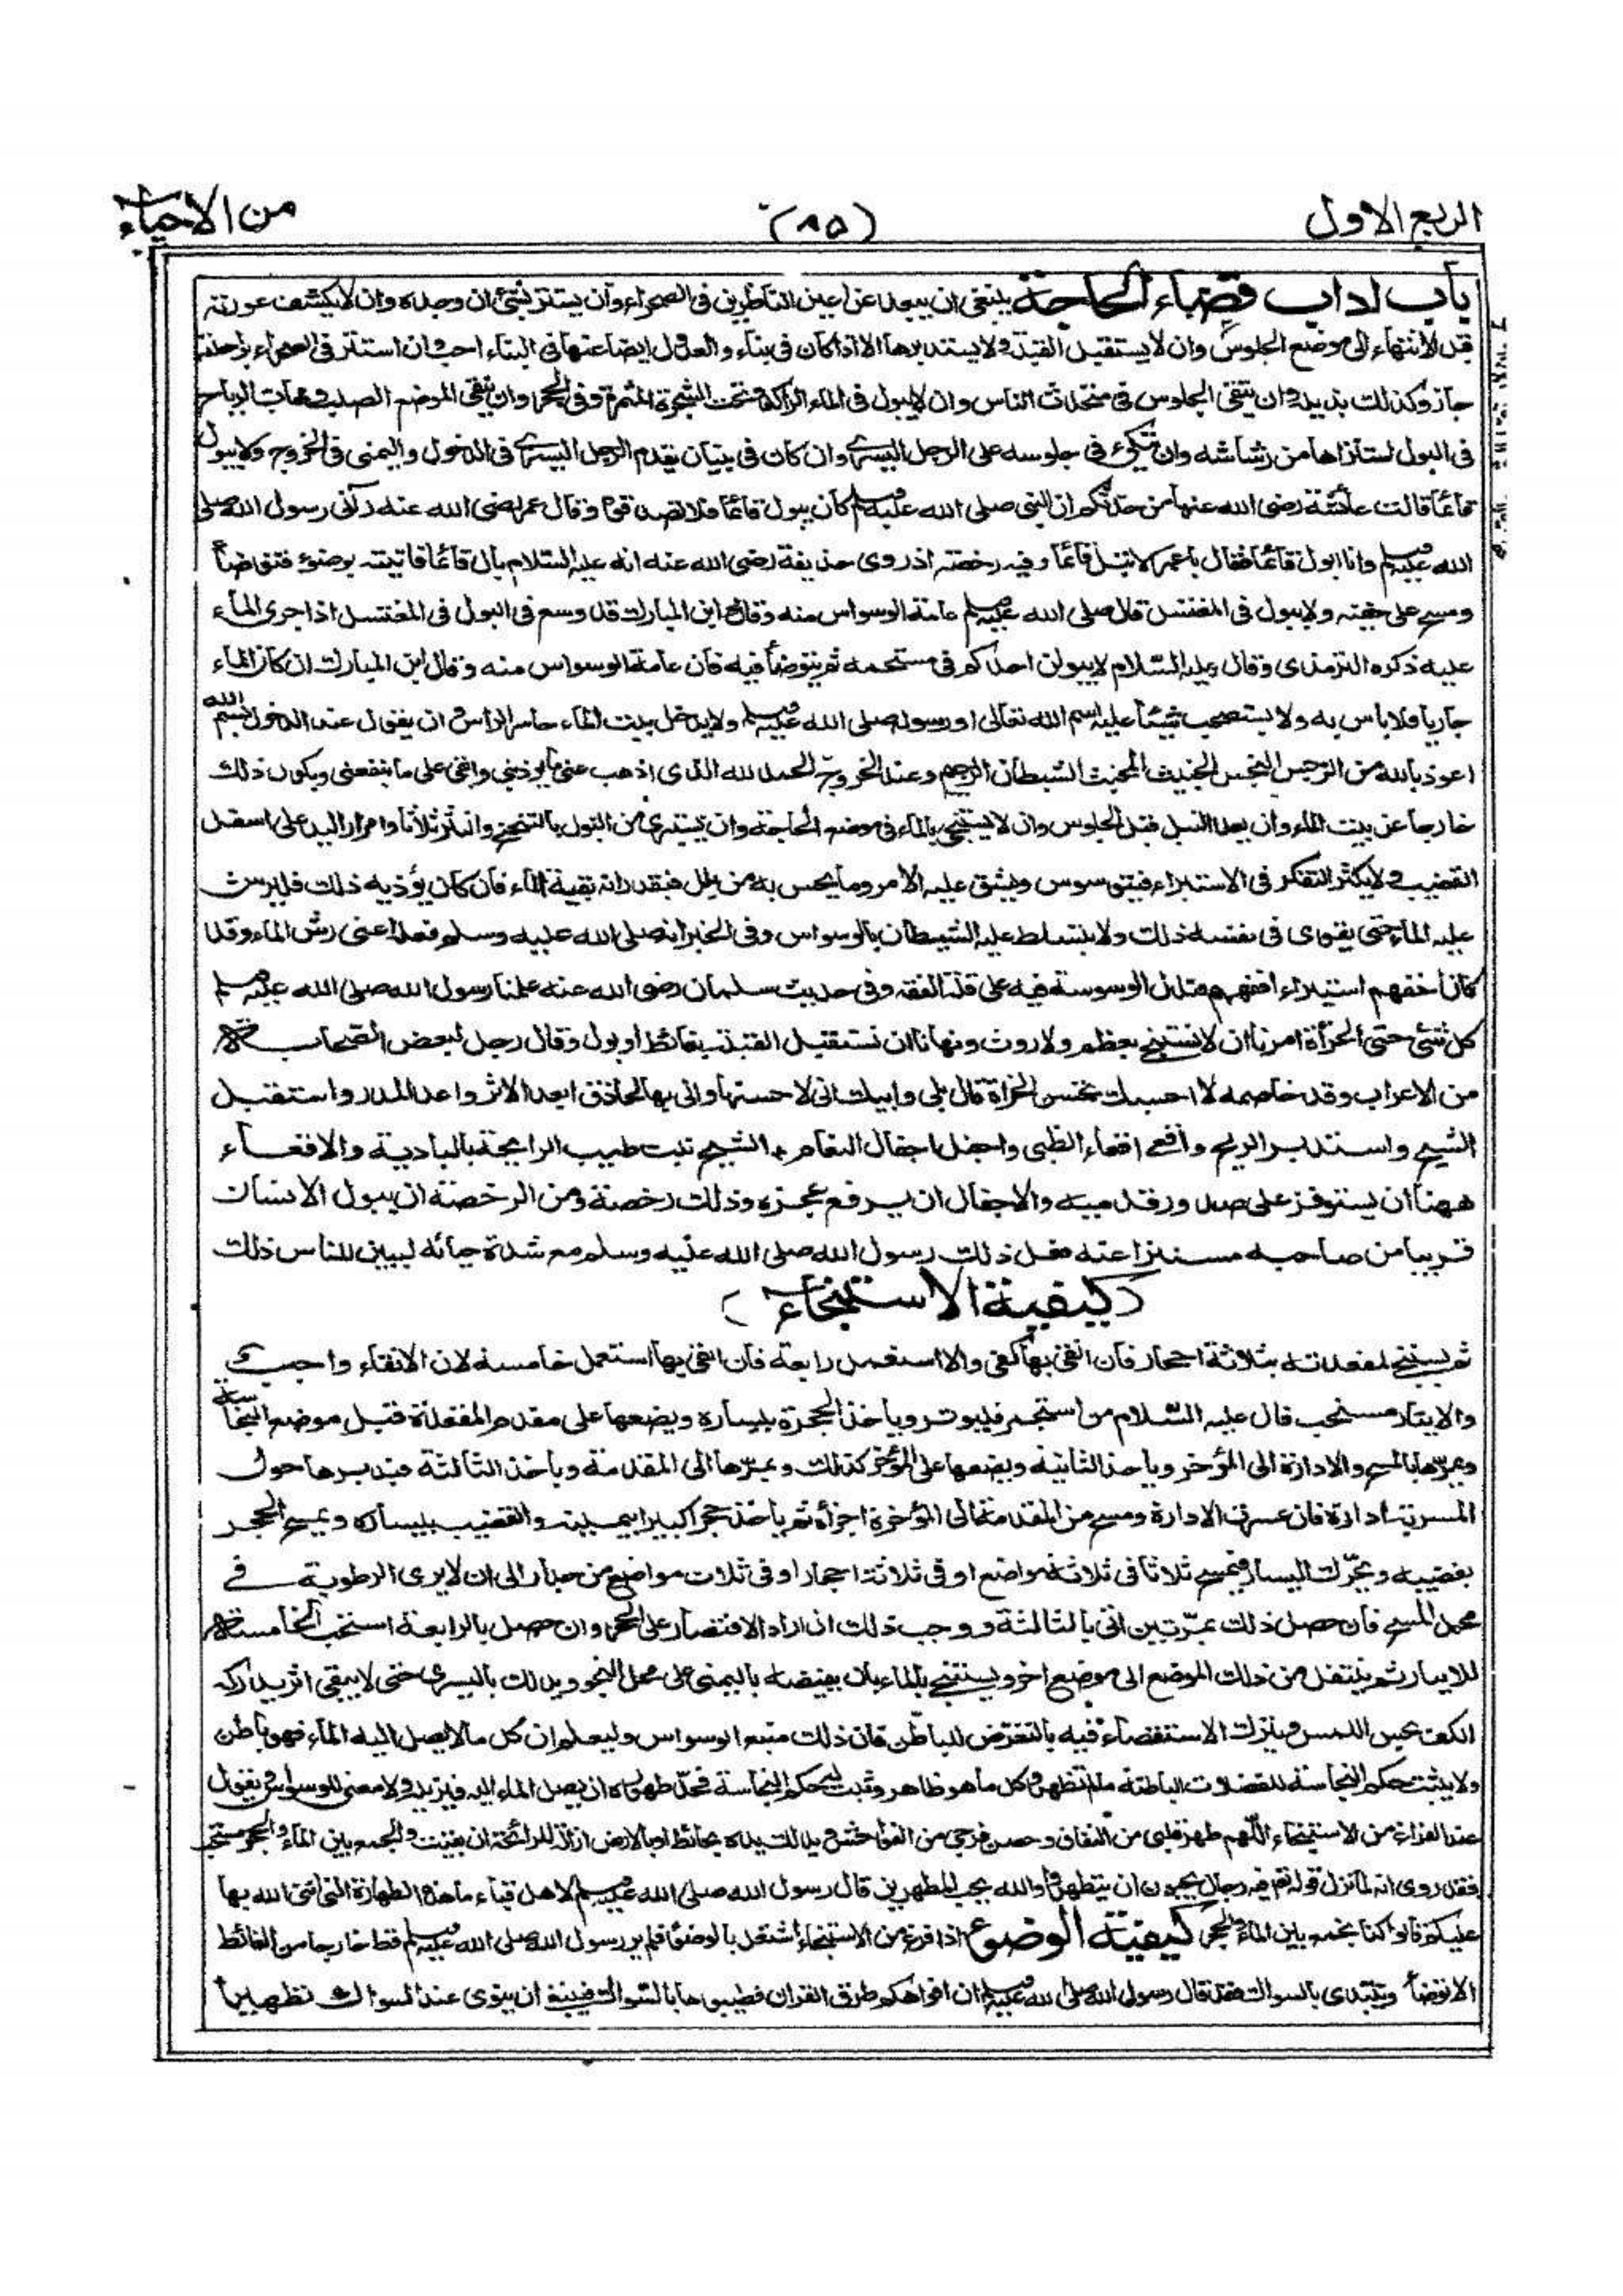 الربع الاول (٨٥) من الاحياء
باب اداب قضاء الحاجة ينبغى ان يبعد عن اعين الناظرين فى الصحراء وان يستتر بشئ ان وجده وان لا يكشف عورته
قبل الانتهاء الى موضع الجلوس وان لا يستقبل القبلة ولا يستدبرها الا اذا كان فى بناء والعدول ايضا عنها فى البناء احب وان استتر فى الصحراء براحلته
جاز وكذلك بذيله وان يتقى الجلوس فى متحدث الناس وان لا يبول فى الماء الراكد وتحت الشجرة المثمرة وفى الجحر وان يتقى الموضع الصلب ومهاب الرياح
فى البول استنزاها من رشاشه وان يتكئ فى جلوسه على الرجل اليسرى وان كان فى بنيان يقدم الرجل اليسرى فى الدخول واليمنى فى الخروج ولا يبول
قائما قالت عائشة رضى الله عنها من حدثكم ان النبى صلى الله عليه وسلم كان يبول قائما فلا تصدقوه وقال عمر رضى الله عنه رآنى رسول الله صلى
الله عليه وسلم وانا ابول قائما فقال يا عمر لا تبل قائما وفيه رخصة اذ روى حذيفة رضى الله عنه انه عليه السلام بال قائما فاتيته بوضوء فتوضأ
ومسح على خفيه ولا يبول فى المغتسل قال صلى الله عليه وسلم عامة الوسواس منه وقال ابن المبارك قد وسع فى البول فى المغتسل اذا جرى الماء
عليه ذكره الترمذى وقال عليه السلام لا يبولن احدكم فى مستحمه ثم يتوضأ فيه فان عامة الوسواس منه وقال ابن المبارك ان كان الماء
جاريا فلا باس به ولا يستصحب شيئا عليه اسم الله تعالى او رسوله صلى الله عليه وسلم ولا يدخل بيت الماء حاسر الراس وان يقول عند الدخول بسم الله
اعوذ بالله من الرجس النجس الخبيث المخبث الشيطان الرجيم وعند الخروج الحمد لله الذى اذهب عنى ما يوذينى وابقى على ما ينفعنى ويكون ذلك
خارجا عن بيت الماء وان يعد النبل قبل الجلوس وان لا يستنجى بالماء فى موضع الحاجة وان يستبرئ من البول بالتنحنح والنثر ثلاثا وامرار اليد على اسفل
القضيب ولا يكثر التفكر فى الاستبراء فيتوسوس ويشق عليه الامر وما يحس به من بلل فيقدر انه بقية الماء فان كان يؤذيه ذلك فليرش
عليه الماء حتى يقوى فى نفسه ذلك ولا يتسلط عليه الشيطان بالوسواس وفى الخبر انه صلى الله عليه وسلم فعله اعنى رش الماء وقد
كان اخفهم استبراء افقههم فتدل الوسوسة فيه على قلة الفقه وفى حديث سلمان رضى الله عنه علمنا رسول الله صلى الله عليه وسلم
كل شئ حتى الخرأة امرنا ان لا نستنجى بعظم ولا روث ونهانا ان نستقبل القبلة بغائط او بول وقال رجل لبعض الصحابة
من الاعراب وقد خاصمه لا احسبك تحسن الخرأة قال بلى وابيك انى لاحسنها وانى بها لحاذق ابعد الاثر واعد المدر واستقبل
الشيح واستدبر الريح واقعى اقعاء الظبى واجفل اجفال النعام الشيح نبت طيب الرائحة بالبادية والاقعاء
ههنا ان يستوفز على صدور قدميه والاجفال ان يرفع عجزه وذلك رخصة ومن الرخصة ان يبول الانسان
قريبا من صاحبه مستترا عنه فعل ذلك رسول الله صلى الله عليه وسلم مع شدة حيائه ليبين للناس ذلك
(كيفية الاستنجاء)
ثم يستنجى لمقعدته بثلاثة احجار فان انقى بها كفى والا استعمل رابعة فان انقى بها استعمل خامسة لان الانقاء واجب
والايتار مستحب قال عليه السلام من استجمر فليوتر وياخذ الحجر بيساره ويضعها على مقدم المقعدة قبل موضع النجاسة
ويمرها بالمسح والادارة الى المؤخر وياخذ الثانية ويضعها على المؤخر كذلك ويمرها الى المقدمة وياخذ الثالثة فيديرها حول
المسربة ادارة فان عسرت الادارة ومسح من المقدمة الى المؤخرة اجزأه ثم ياخذ حجرا كبيرا بيمينه والقضيب بيساره ويمسح الحجر
بقضيبه ويحرك اليسار فيمسح ثلاثا فى ثلاثة مواضع او فى ثلاثة احجار او فى ثلاث مواضع من جدار الى ان لا يرى الرطوبة فى
محل المسح فان حصل ذلك بمرتين اتى بالثالثة ووجب ذلك ان اراد الاقتصار على الحجر وان حصل بالرابعة استحب الخامسة
للايتار ثم ينتقل من ذلك الموضع الى موضع اخر ويستنجى بالماء بان يفيضه باليمنى على محل النجو ويدلك باليسرى حتى لا يبقى اثر يدركه
الكف بحس اللمس ويترك الاستقصاء فيه بالتعرض للباطن فان ذلك منبع الوسواس وليعلم ان كل ما لا يصل اليه الماء فهو باطن
ولا يثبت حكم النجاسة للفضلات الباطنة ما لم تظهر وكل ما هو ظاهر وثبت له حكم النجاسة فحد طهوره ان يصل الماء اليه فيزيله ولا معنى للوسواس ويقول
عند الفراغ من الاستنجاء اللهم طهر قلبى من النفاق وحصن فرجى من الفواحش ويدلك يده بحائط او بالارض ازالة للرائحة ان بقيت والجمع بين الماء والحجر مستحب
فقد روى انه لما نزل قوله تع فيه رجال يحبون ان يتطهروا والله يحب المطهرين قال رسول الله صلى الله عليه وسلم لاهل قباء ما هذه الطهارة التى اثنى الله بها
عليكم قالوا كنا نجمع بين الماء والحجر كيفية الوضوء اذا فرغ من الاستنجاء اشتغل بالوضوء فلم ير رسول الله صلى الله عليه وسلم قط خارجا من الغائط
الا توضأ ويبتدى بالسواك فقد قال رسول الله صلى الله عليه وسلم ان افواهكم طرق القران فطيبوها بالسواك فينبغى ان ينوى عند السواك تطهير